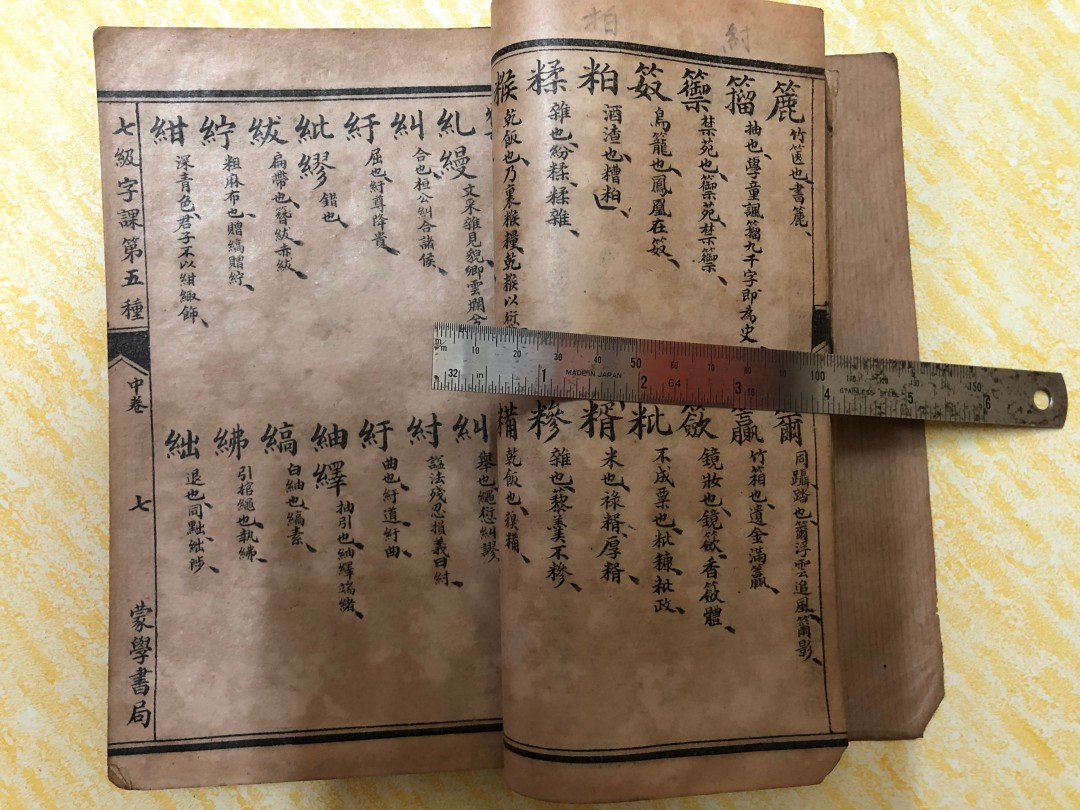 粕
紂
簏 竹篋也、書簏、
籀 抽也、學童諷籀九千字即為史、
籞 禁苑也、籞苑、禁籞、
笯 鳥籠也、鳳凰在笯、
粕 酒渣也、糟粕、
糅 雜也、紛糅、糅雜、
糇 乾飯也、乃裹糇糧、乾糇以
同躡踏也、籋浮雲追風、籋影、
籯 竹箱也、遺金滿籯、
籢 鏡妝也、鏡籢、香籢體、
粃 不成粟也、粃糠、粃政、
糈 米也、祿糈、厚糈
糝 雜也、藜羹不糝、
糒 乾飯也、糗糒、
縵 文采雜見貌卿雲爛兮
糾 合也、桓公糾合諸侯、
紆 屈也、紆尊降貴、
紕繆 錯也、
紱 扁帶也、簪紱、赤紱、
紵 粗麻布也、贈縞贈紵、
紺 深青色、君子不以紺緅飾、
糾 舉也、繩愆糾謬、
紂 諡法殘忍損義曰紂、
紆 曲也、紆道、紆曲、
紬繹 抽引也、紬繹端緒、
縞 白紬也、縞素、
紼 引棺繩也、執紼、
絀 退也、同黜、絀陟、
七級字課第五種
中卷
七
蒙學書局
m/m 10 20 30 40 50 60 70 80 90 100 110 120 130 150
32 in 1 2 3 4 5 6
MADE IN JAPAN
64
STAINLESS STEEL